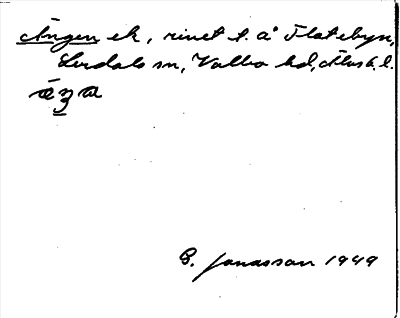 Ängen ek, rivet t. å Flatebyn,
Lerdals sn, Valbo hd, Älvsb. l.
B. Jonasson 1949